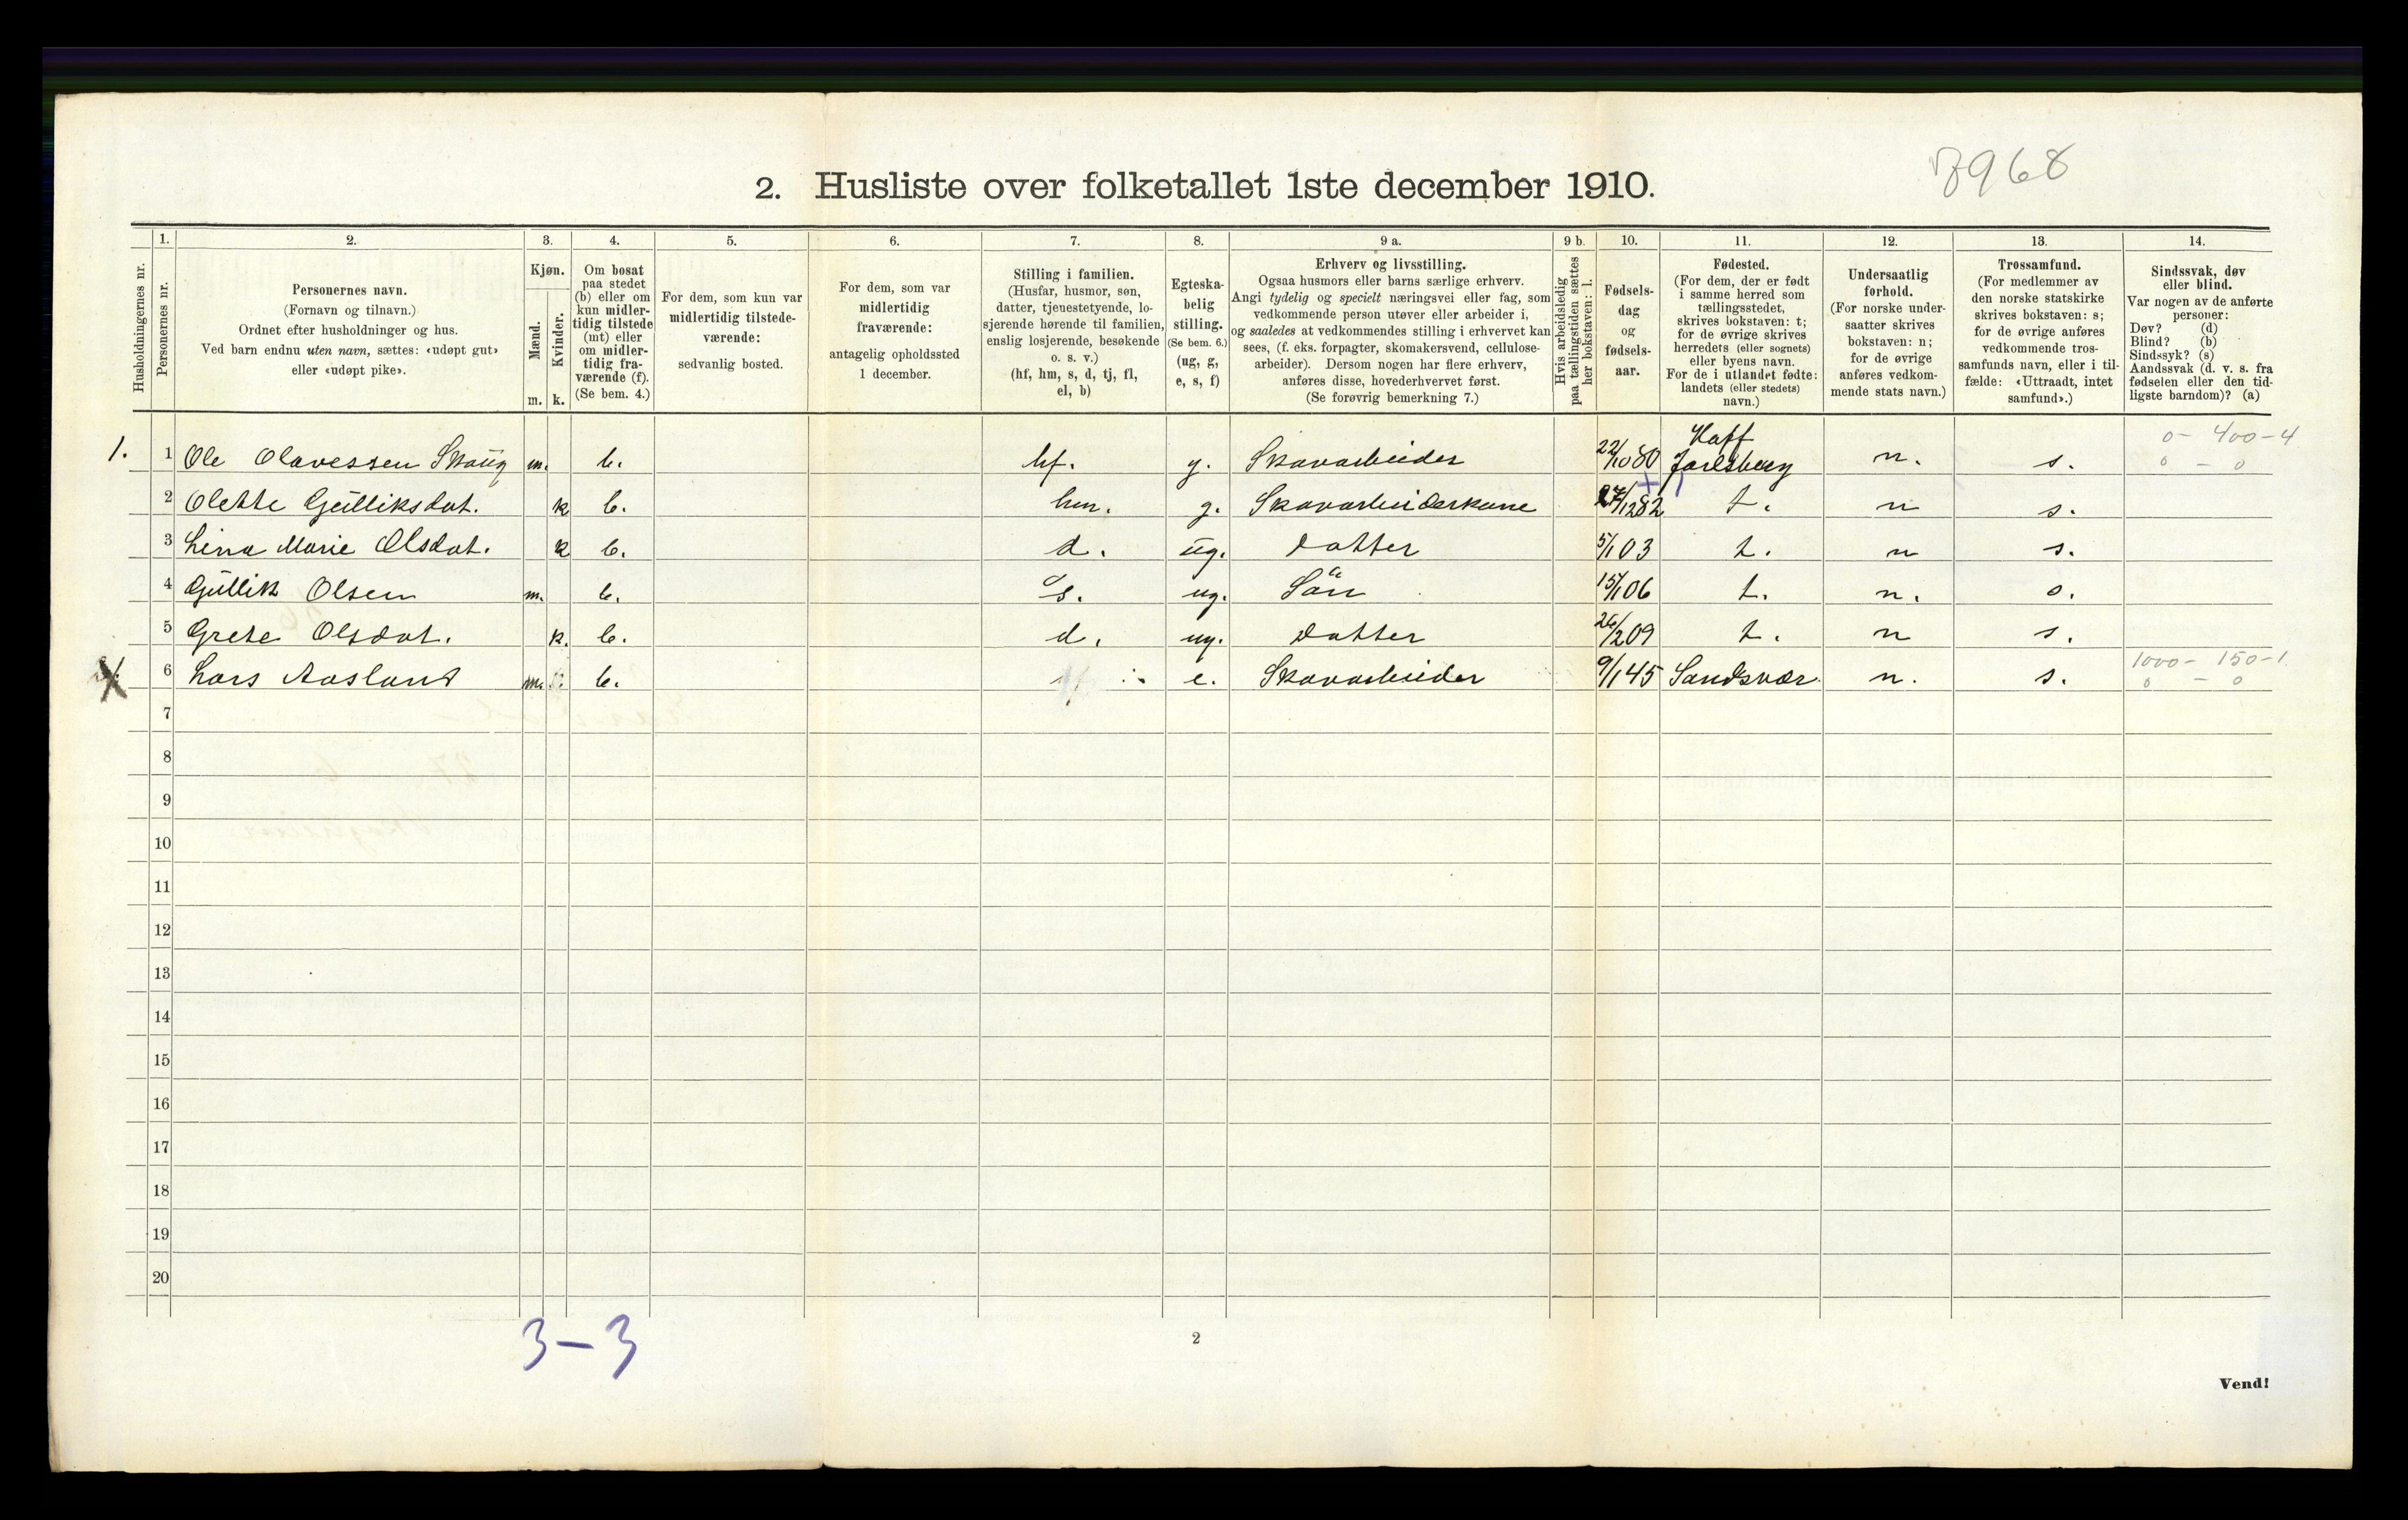 7968
2. Husliste over folketallet 1ste december 1910.
1. 2. 3. 4. 5. 6. 7. 8. 9 a. 9 b. 10. 11. 12. 13. 14.
Husholdningernes nr.
Personernes nr.
Personernes navn.
(Fornavn og tilnavn.)
Ordnet efter husholdninger og hus.
Ved barn endnu uten navn, sættes: «udøpt gut»
eller «udøpt pike».
Kjøn.
Mænd.
Kvinder.
m. k.
Om bosat
paa stedet
(b) eller om
kun midler-
tidig tilstede
(mt) eller
om midler-
tidig fra-
værende (f).
(Se bem. 4.)
For dem, som kun var
midlertidig tilstede-
værende:
sedvanlig bosted.
For dem, som var
midlertidig
fraværende:
antagelig opholdssted
1 december.
Stilling i familien.
(Husfar, husmor, søn,
datter, tjenestetyende, lo-
sjerende hørende til familien,
enslig losjerende, besøkende
o. s. v.)
(hf, hm, s, d, tj, fl,
el, b)
Egteska-
belig
stilling.
(Se bem. 6.)
(ug, g,
e, s, f)
Erhverv og livsstilling.
Ogsaa husmors eller barns særlige erhverv.
Angi tydelig og specielt næringsvei eller fag, som
vedkommende person utøver eller arbeider i,
og saaledes at vedkommendes stilling i erhvervet kan
sees, (f. eks. forpagter, skomakersvend, cellulose-
arbeider). Dersom nogen har flere erhverv,
anføres disse, hovederhvervet først.
(Se forøvrig bemerkning 7.)
Hvis arbeidsledig
paa tællingstiden sættes
her bokstaven: l.
Fødsels-
dag
og
fødsels-
aar.
Fødested.
(For dem, der er født
i samme herred som
tællingsstedet,
skrives bokstaven: t;
for de øvrige skrives
herredets (eller sognets)
eller byens navn.
For de i utlandet fødte:
landets (eller stedets)
navn.)
Undersaatlig
forhold.
(For norske under-
saatter skrives
bokstaven: n;
for de øvrige
anføres vedkom-
mende stats navn.)
Trossamfund.
(For medlemmer av
den norske statskirke
skrives bokstaven: s;
for de øvrige anføres
vedkommende tros-
samfunds navn, eller i til-
fælde: «Uttraadt, intet
samfund».)
Sindssvak, døv
eller blind.
Var nogen av de anførte
personer:
Døv? (d)
Blind? (b)
Sindssyk? (s)
Aandssvak (d. v. s. fra
fødselen eller den tid-
ligste barndom)? (a)
1. 1 Ole Olavessen Skaug m. b. hf. g. Skovarbeider 22/10 80 Jarlsberg n. s. 0 - 400 - 4
0 - 0
2 Olette Gulliksdat. k b. hm. g. Skovarbeiderkone 27/12 82 t. n s.
3 Lina Marie Olsdat. k b. d. ug. Datter 5/1 03 t. n s.
4 Gullik Olsen m. b. s. ug. Sön 15/1 06 t. n. s.
5 Grete Olsdat. k. b. d. ug. Datter 26/2 09 t. n s.
6 Lars Aasland m. b. e. Skovarbeider 9/1 45 Sandsvær n. s. 1000 - 150 - 1
0 - 0
7
8
9
10
11
12
13
14
15
16
17
18
19
20
3 - 3
2
Vend!